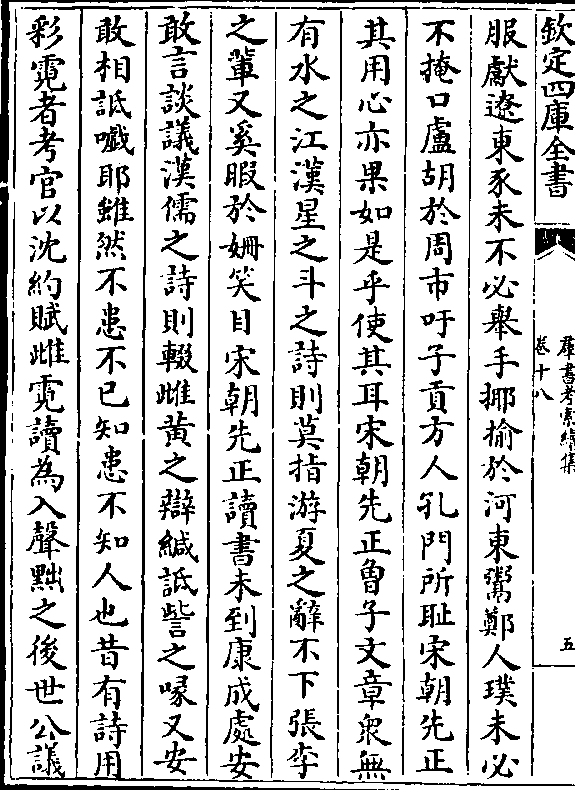 欽定四庫全書
羣書考索續集
卷十八
五
服獻遼東豕未不必舉手揶揄於河東鬻鄭人璞未必
不掩口盧胡於周市吁子貢方人孔門所耻宋朝先正
其用心亦果如是乎使其耳宋朝先正魯子文章衆無
有水之江漢星之斗之詩則莫指游夏之辭不下張李
之輩又奚暇於姍笑目宋朝先正讀書未到康成處安
敢言談議漢儒之詩則輟雌黄之辯緘詆訾之喙又安
敢相詆嚱耶雖然不患不已知患不知人也昔有詩用
彩霓者考官以沈約賦雌霓讀為入聲黜之後世公議